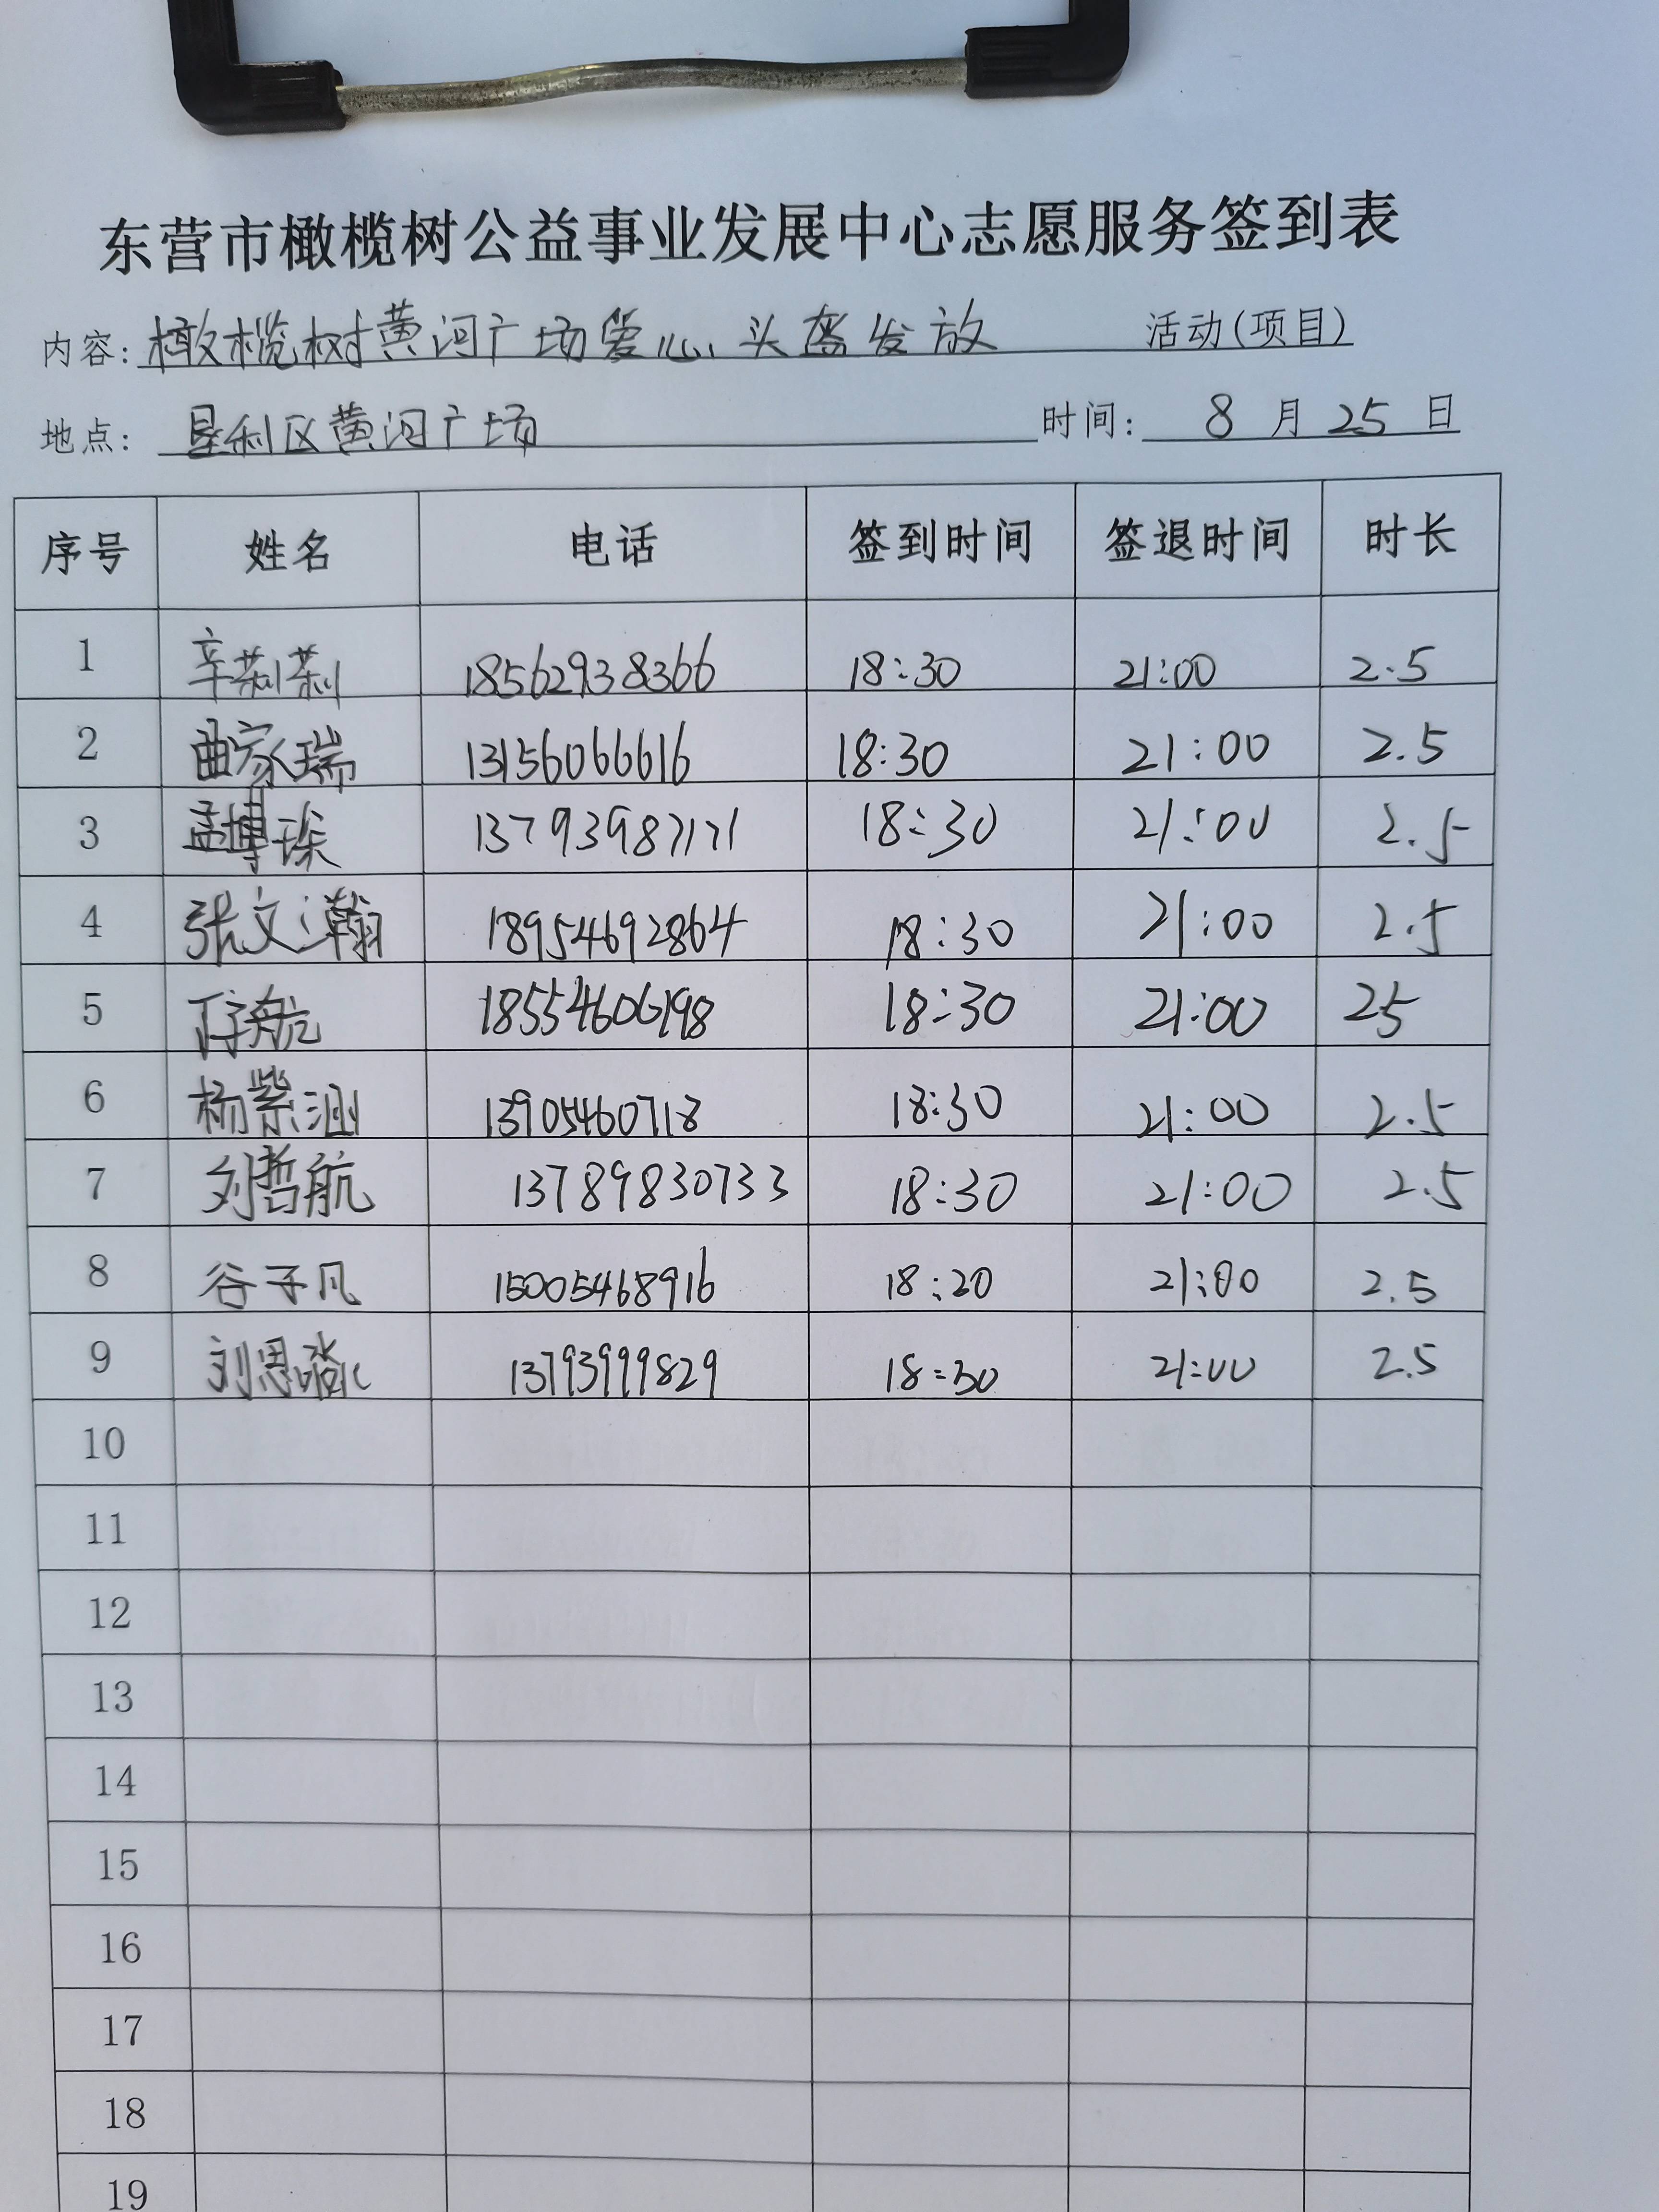 东营市橄榄树公益事业发展中心志愿服务签到表
内容: 橄榄树黄河广场爱心头盔发放 活动(项目)
地点: 垦利区黄河广场 时间: 8 月 25 日
序号 姓名 电话 签到时间 签退时间 时长
1 辛莉莉 18562938366 18:30 21:00 2.5
2 曲家瑞 13156066616 18:30 21:00 2.5
3 孟博琛 13793987171 18:30 21:00 2.5
4 张文瀚 18954692864 18:30 21:00 2.5
5 18554606198 18:30 21:00 25
6 杨紫涵 13905460718 18:30 21:00 2.5
7 刘哲航 13789830733 18:30 21:00 2.5
8 谷子凡 15005468916 18:20 21:00 2.5
9 刘思 13793999829 18:30 21:00 2.5
10
11
12
13
14
15
16
17
18
19